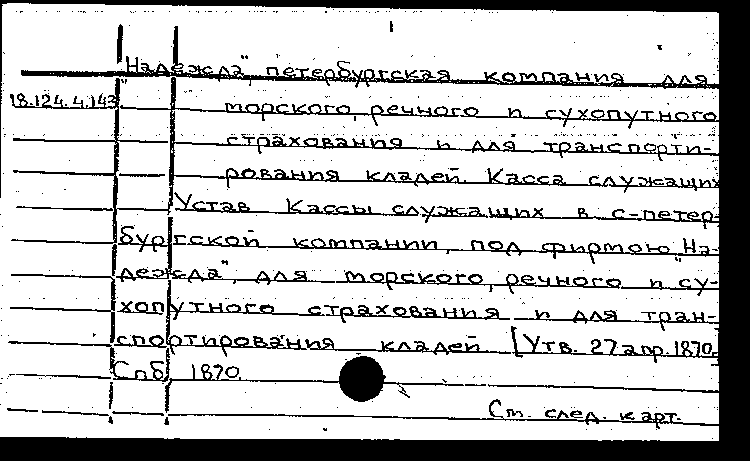 "Надежда", петербургская компания для
18.124.4.143
морского, речного и сухопутного
страхования и для транспорти-
рования кладей. Касса служащих
Устав Кассы служащих в с-петер-
бургской компании, под фирмою „На-
дежда", для морского, речного и су-
хопутного страхования и для тран-
спортирования кладей. [Утв. 27 апр. 1870.]
Спб 1870.
См. след. карт.